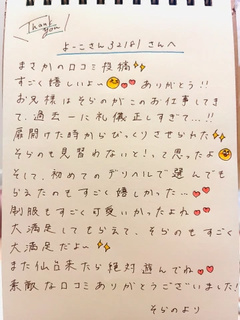 Thank you
よーこさん32181さんへ
まさかの口コミ投稿✨
すごく嬉しいよ〜😊❤❤ ありがとう!!
お兄様はそらのがこのお仕事してき
て、過去一に礼儀正しすぎて…!!
扉開けた時からびっくりさせられた✨
そらのも見習わないと!って思ったよ😊
そして、初めてのデリヘルで選んでも
らえたのもすごく嬉しかった…❤❤
制服もすごく可愛いかったよね❤❤
大満足してもらえて、そらのもすごく
大満足だよ〜✨
また仙台来たら絶対遊んでね❤❤
素敵な口コミありがとうございました!
そらのより